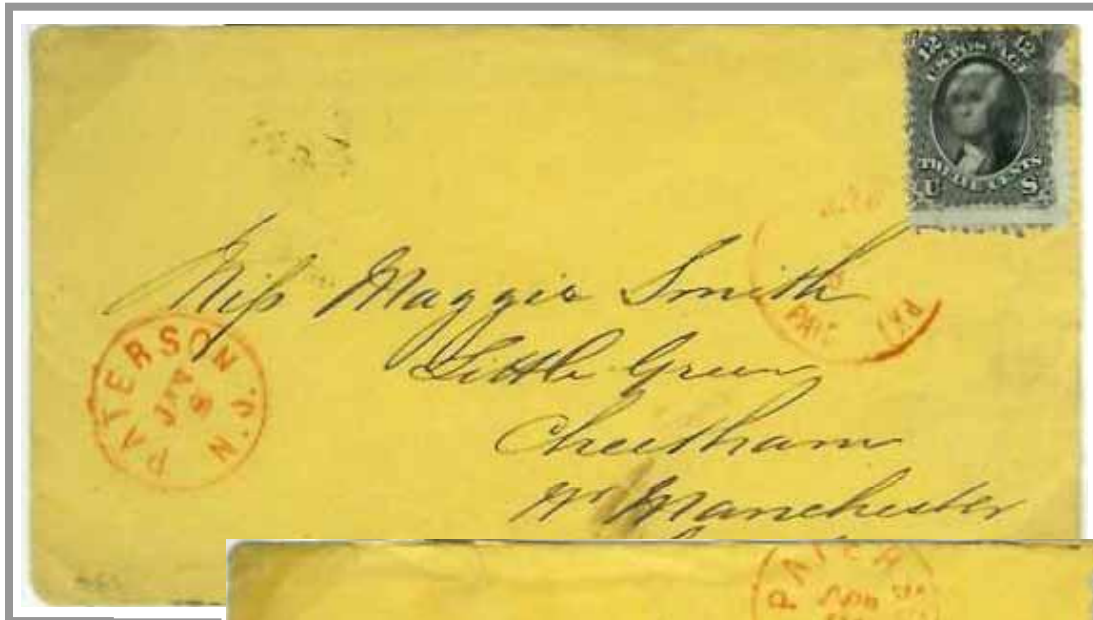 12 12
U.S. POSTAGE
TWELVE CENTS
U S
Miss Maggie Smith
Little Green
Cheetham
Nr Manchester
PATERSON N.J.
JAN
5
PAID
PATER